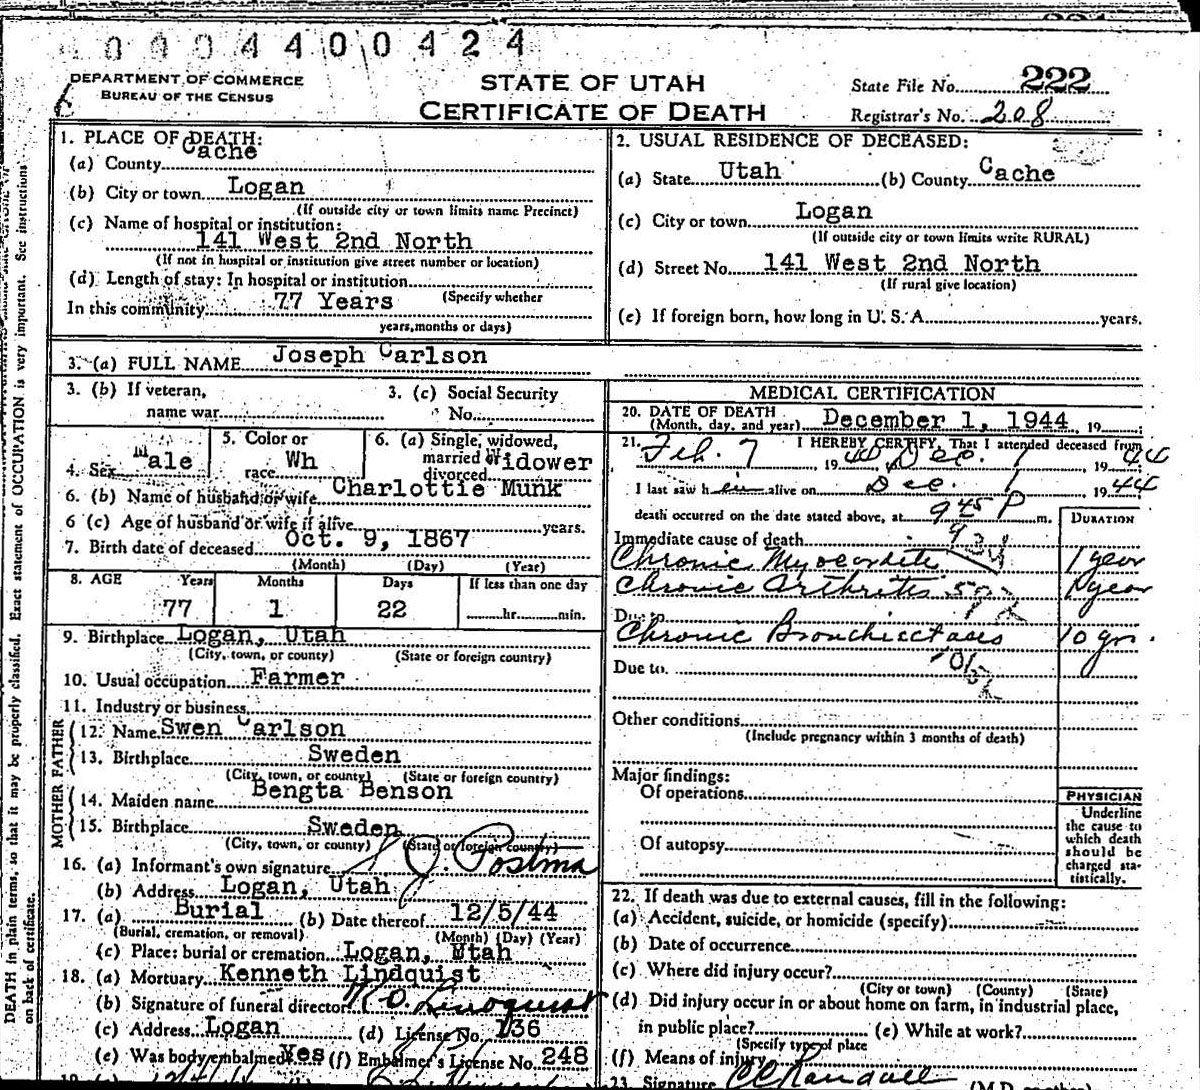 0004400424
DEPARTMENT OF COMMERCE
BUREAU OF THE CENSUS
STATE OF UTAH
CERTIFICATE OF DEATH
State File No. 222
Registrar's No. 208
1. PLACE OF DEATH:
(a) County Cache
(b) City or town Logan
(If outside city or town limits name Precinct)
(c) Name of hospital or institution:
141 West 2nd North
(If not in hospital or institution give street number or location)
(d) Length of stay: In hospital or institution
(Specify whether
In this community 77 Years
years, months or days)
2. USUAL RESIDENCE OF DECEASED:
(a) State Utah (b) County Cache
(c) City or town Logan
(If outside city or town limits write RURAL)
(d) Street No. 141 West 2nd North
(If rural give location)
(e) If foreign born, how long in U. S. A. years.
3. (a) FULL NAME Joseph Carlson
3. (b) If veteran,
name war
3. (c) Social Security
No.
4. Sex Male
5. Color or
race Wh
6. (a) Single, widowed,
married or
divorced Widower
6. (b) Name of husband or wife Charlottie Munk
6 (c) Age of husband or wife if alive years.
7. Birth date of deceased Oct. 9, 1867
(Month) (Day) (Year)
8. AGE Years Months Days If less than one day
77 1 22 hr. min.
9. Birthplace Logan, Utah
(City, town, or county) (State or foreign country)
10. Usual occupation Farmer
11. Industry or business
FATHER
12. Name Swen Carlson
13. Birthplace Sweden
(City, town, or county) (State or foreign country)
MOTHER
14. Maiden name Bengta Benson
15. Birthplace Sweden
(City, town, or county) (State or foreign country)
16. (a) Informant's own signature J. Postma
(b) Address Logan, Utah
17. (a) Burial (b) Date thereof 12/5/44
(Burial, cremation, or removal) (Month) (Day) (Year)
(c) Place: burial or cremation Logan, Utah
18. (a) Mortuary Kenneth Lindquist
(b) Signature of funeral director K O Lindquist
(c) Address Logan (d) License No. 136
(e) Was body embalmed Yes (f) Embalmer's License No. 248
MEDICAL CERTIFICATION
20. DATE OF DEATH
(Month, day, and year) December 1, 1944 19
21. I HEREBY CERTIFY, That I attended deceased from
Feb. 7 1940 Dec. 1 1944
I last saw him alive on Dec. 1 1944
death occurred on the date stated above, at 9 45 P m.
DURATION
Immediate cause of death
Chronic Myocardite 1 year
Chronic Arthritis year
Due to
Chronic Bronchiectases 10 yr.
Due to
Other conditions
(Include pregnancy within 3 months of death)
Major findings:
Of operations
Of autopsy
PHYSICIAN
Underline
the cause to
which death
should be
charged sta-
tistically.
22. If death was due to external causes, fill in the following:
(a) Accident, suicide, or homicide (specify)
(b) Date of occurrence
(c) Where did injury occur?
(City or town) (County) (State)
(d) Did injury occur in or about home on farm, in industrial place,
in public place? (e) While at work?
(Specify type of place
(f) Means of injury
23. Signature
DEATH in plain terms, so that it may be properly classified. Exact statement of OCCUPATION is very important. See instructions
on back of certificate.